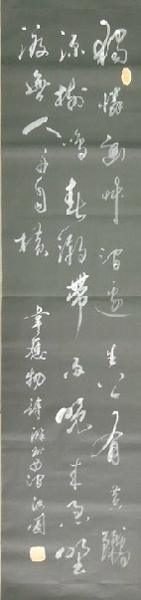 獨憐幽艸澗邊生上有黃鸝
深樹鳴春潮帶雨晚來急野
渡無人舟自橫
韋應物詩滁州西澗